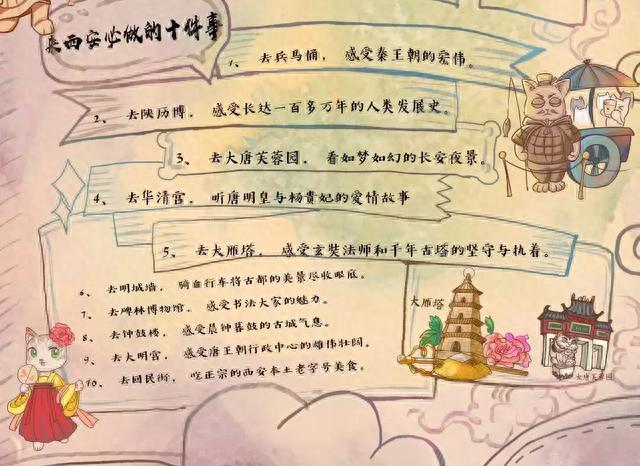 来西安必做的十件事
1、去兵马俑，感受秦王朝的宏伟。
2、去陕历博，感受长达一百多万年的人类发展史。
3、去大唐芙蓉园，看如梦如幻的长安夜景。
4、去华清宫，听唐明皇与杨贵妃的爱情故事
5、去大雁塔，感受玄奘法师和千年古塔的坚守与执着。
6、去明城墙，骑自行车将古都的美景尽收眼底。
7、去碑林博物馆，感受书法大家的魅力。
8、去钟鼓楼，感受晨钟暮鼓的古城气息。
9、去大明宫，感受唐王朝行政中心的雄伟壮阔。
10、去回民街，吃正宗的西安本土老字号美食。
大雁塔
大唐芙蓉园